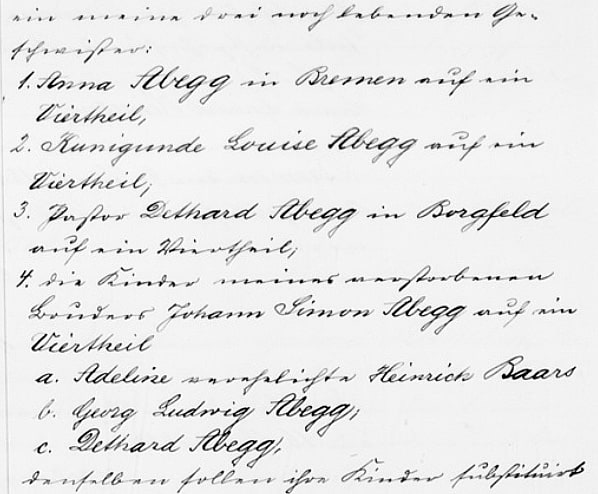 ein meine drei noch lebenden Ge-
schwister:
1. Anna Abegg in Bremen auf ein
Viertheil,
2. Kunigunde Louise Abegg auf ein
Viertheil;
3. Pastor Dethard Abegg in Borgfeld
auf ein Viertheil;
4. die Kinder meines verstorbenen
Bruders Johann Simon Abegg auf ein
Viertheil
a. Adeline verehelichte Heinrich Baars
b. Georg Ludwig Abegg;
c. Dethard Abegg,
denselben sollen ihre Kinder substituirt